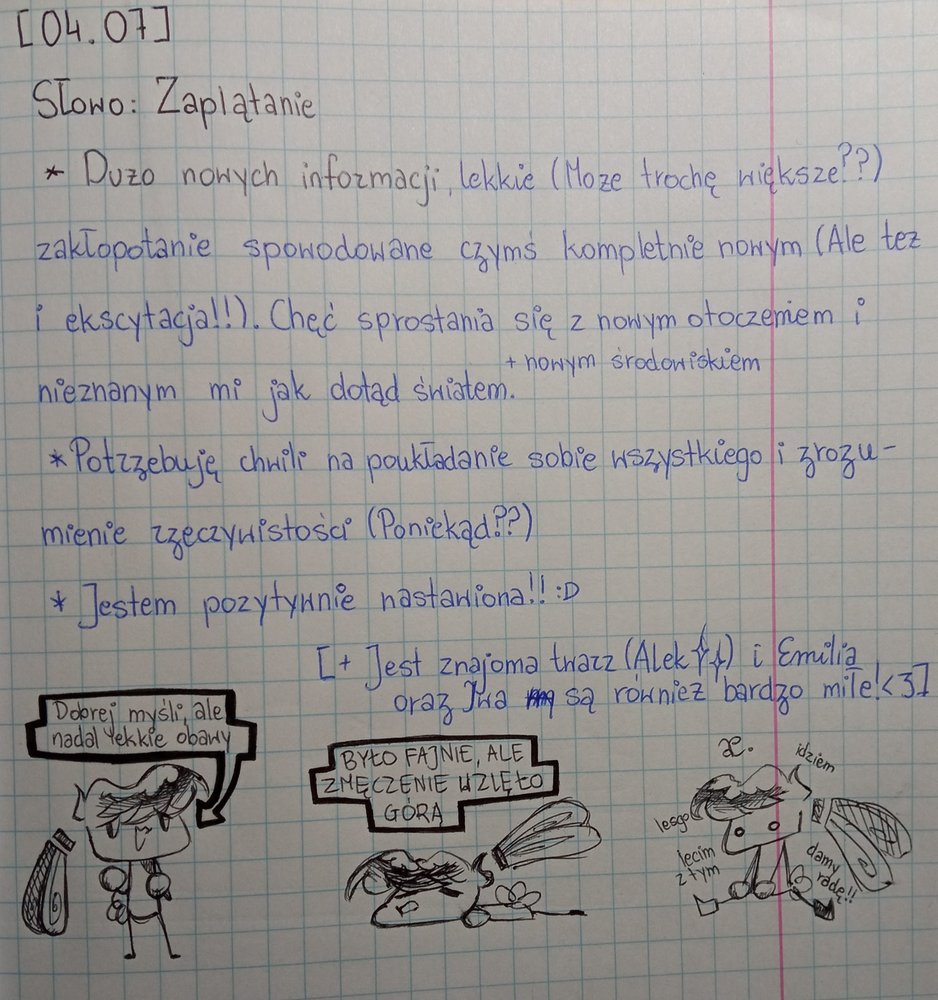 [04.07]
Słowo: Zaplątanie
* Dużo nowych informacji, lekkie (Może trochę większe??)
zakłopotanie spowodowane czymś kompletnie nowym (Ale też
i ekscytacja!!). Chęć sprostania się z nowym otoczeniem i
+ nowym środowiskiem
nieznanym mi jak dotąd światem.
* Potrzebuję chwili na poukładanie sobie wszystkiego i zrozu-
mienie rzeczywistości (Poniekąd??)
* Jestem pozytywnie nastawiona!! :D
[+ Jest znajoma twarz (Alek) i Emilia
oraz Iwa są również bardzo miłe! <3]
Dobrej myśli, ale
nadal lekkie obawy
BYŁO FAJNIE, ALE
ZMĘCZENIE WZIĘŁO
GÓRĄ
æ.
idziem
lesgo
lecim
z tym
damy
radę!!